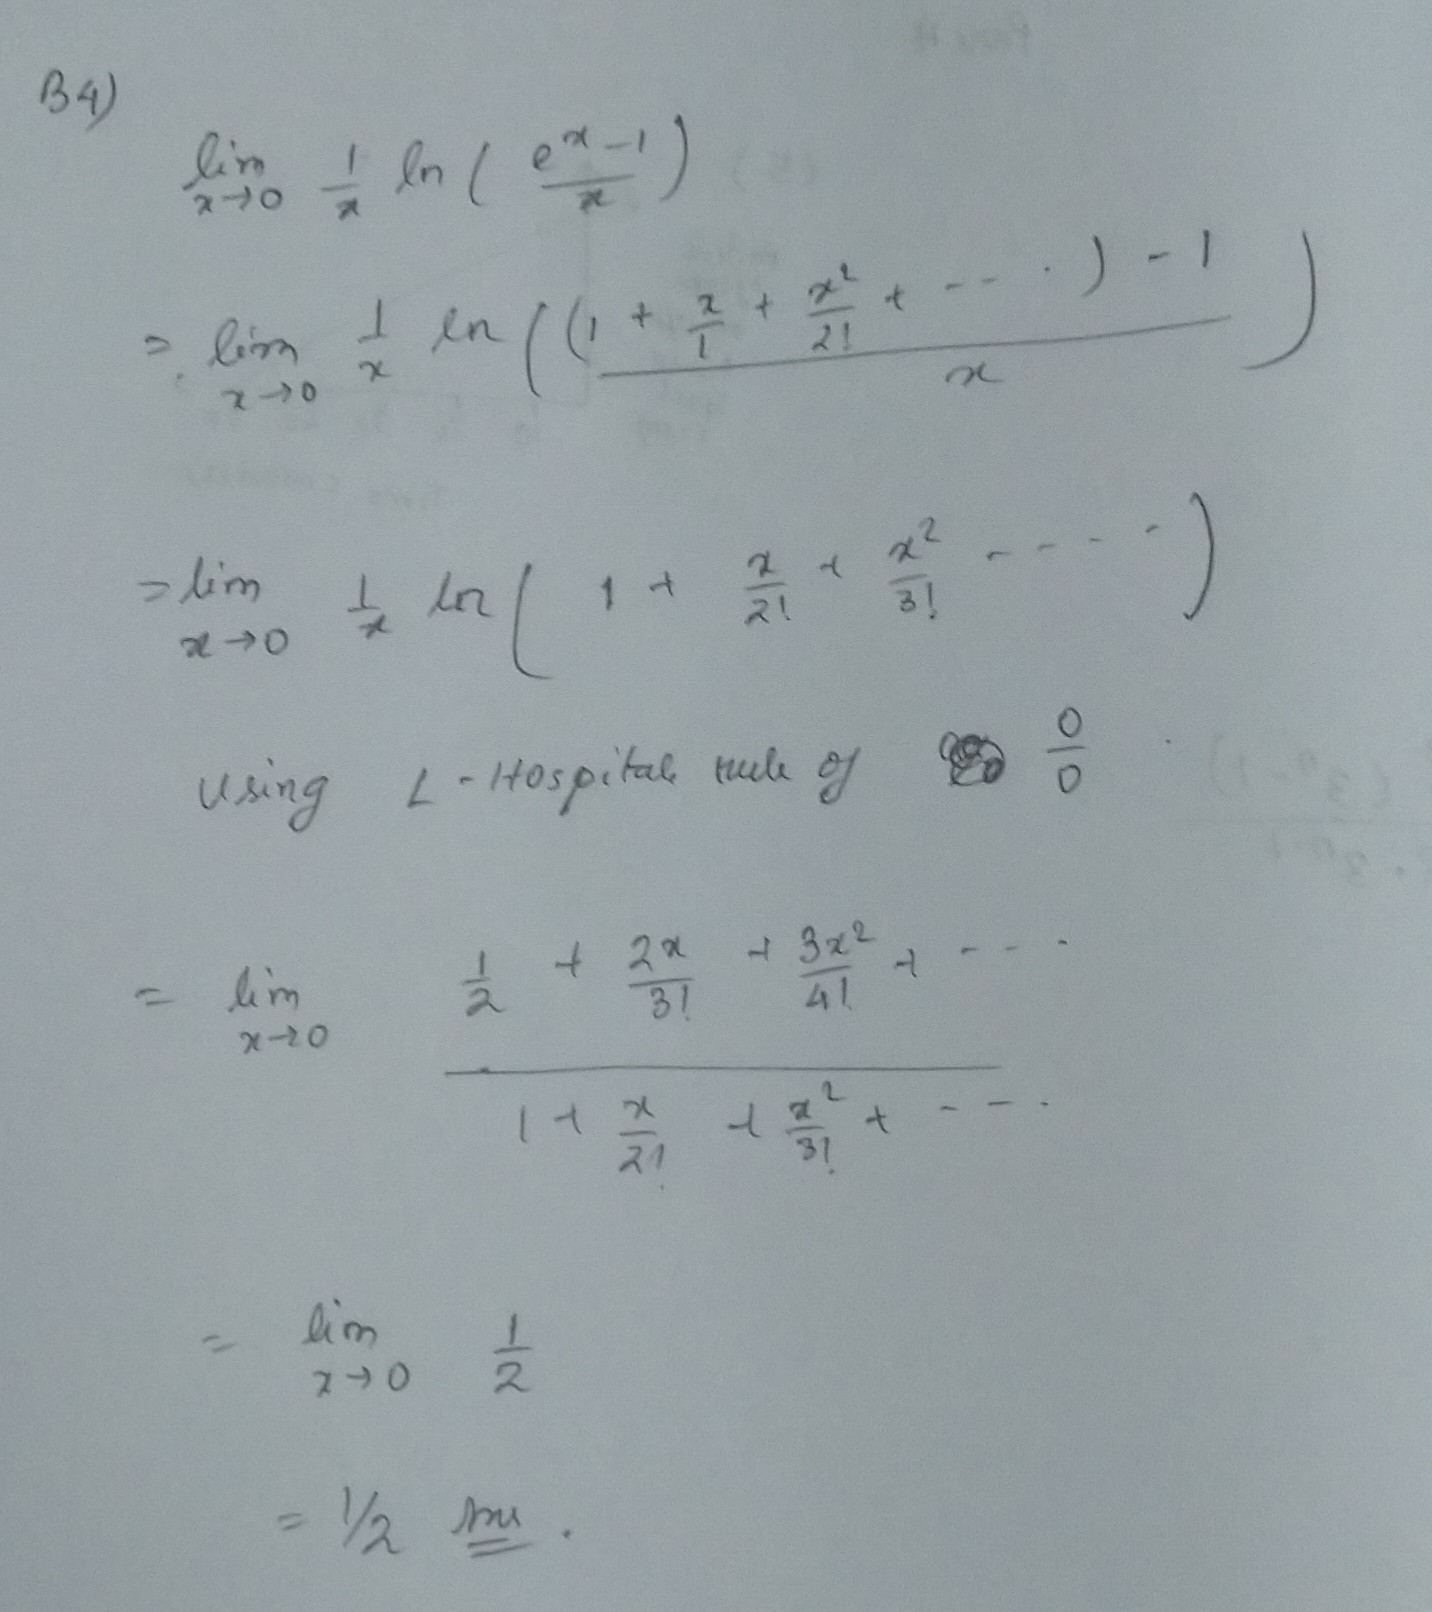 B4)
lim x→0 1/x ln ( (e^x - 1)/x )
= lim x→0 1/x ln ( ((1 + x/1 + x²/2! + - - - .) - 1)/x )
= lim x→0 1/x ln ( 1 + x/2! + x²/3! - - - - - )
Using L-Hospital rule of 0/0 .
= lim x→0 (1/2 + 2x/3! + 3x²/4! + - - - .)/(1 + x/2! + x²/3! + - - - .)
= lim x→0 1/2
= 1/2 Ans .